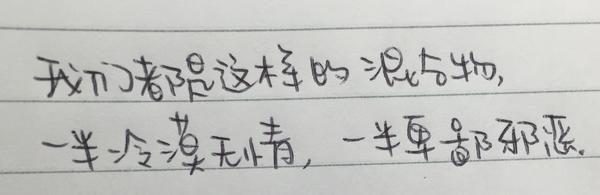 我们都是这样的混合物,
一半冷漠无情，一半卑鄙邪恶.